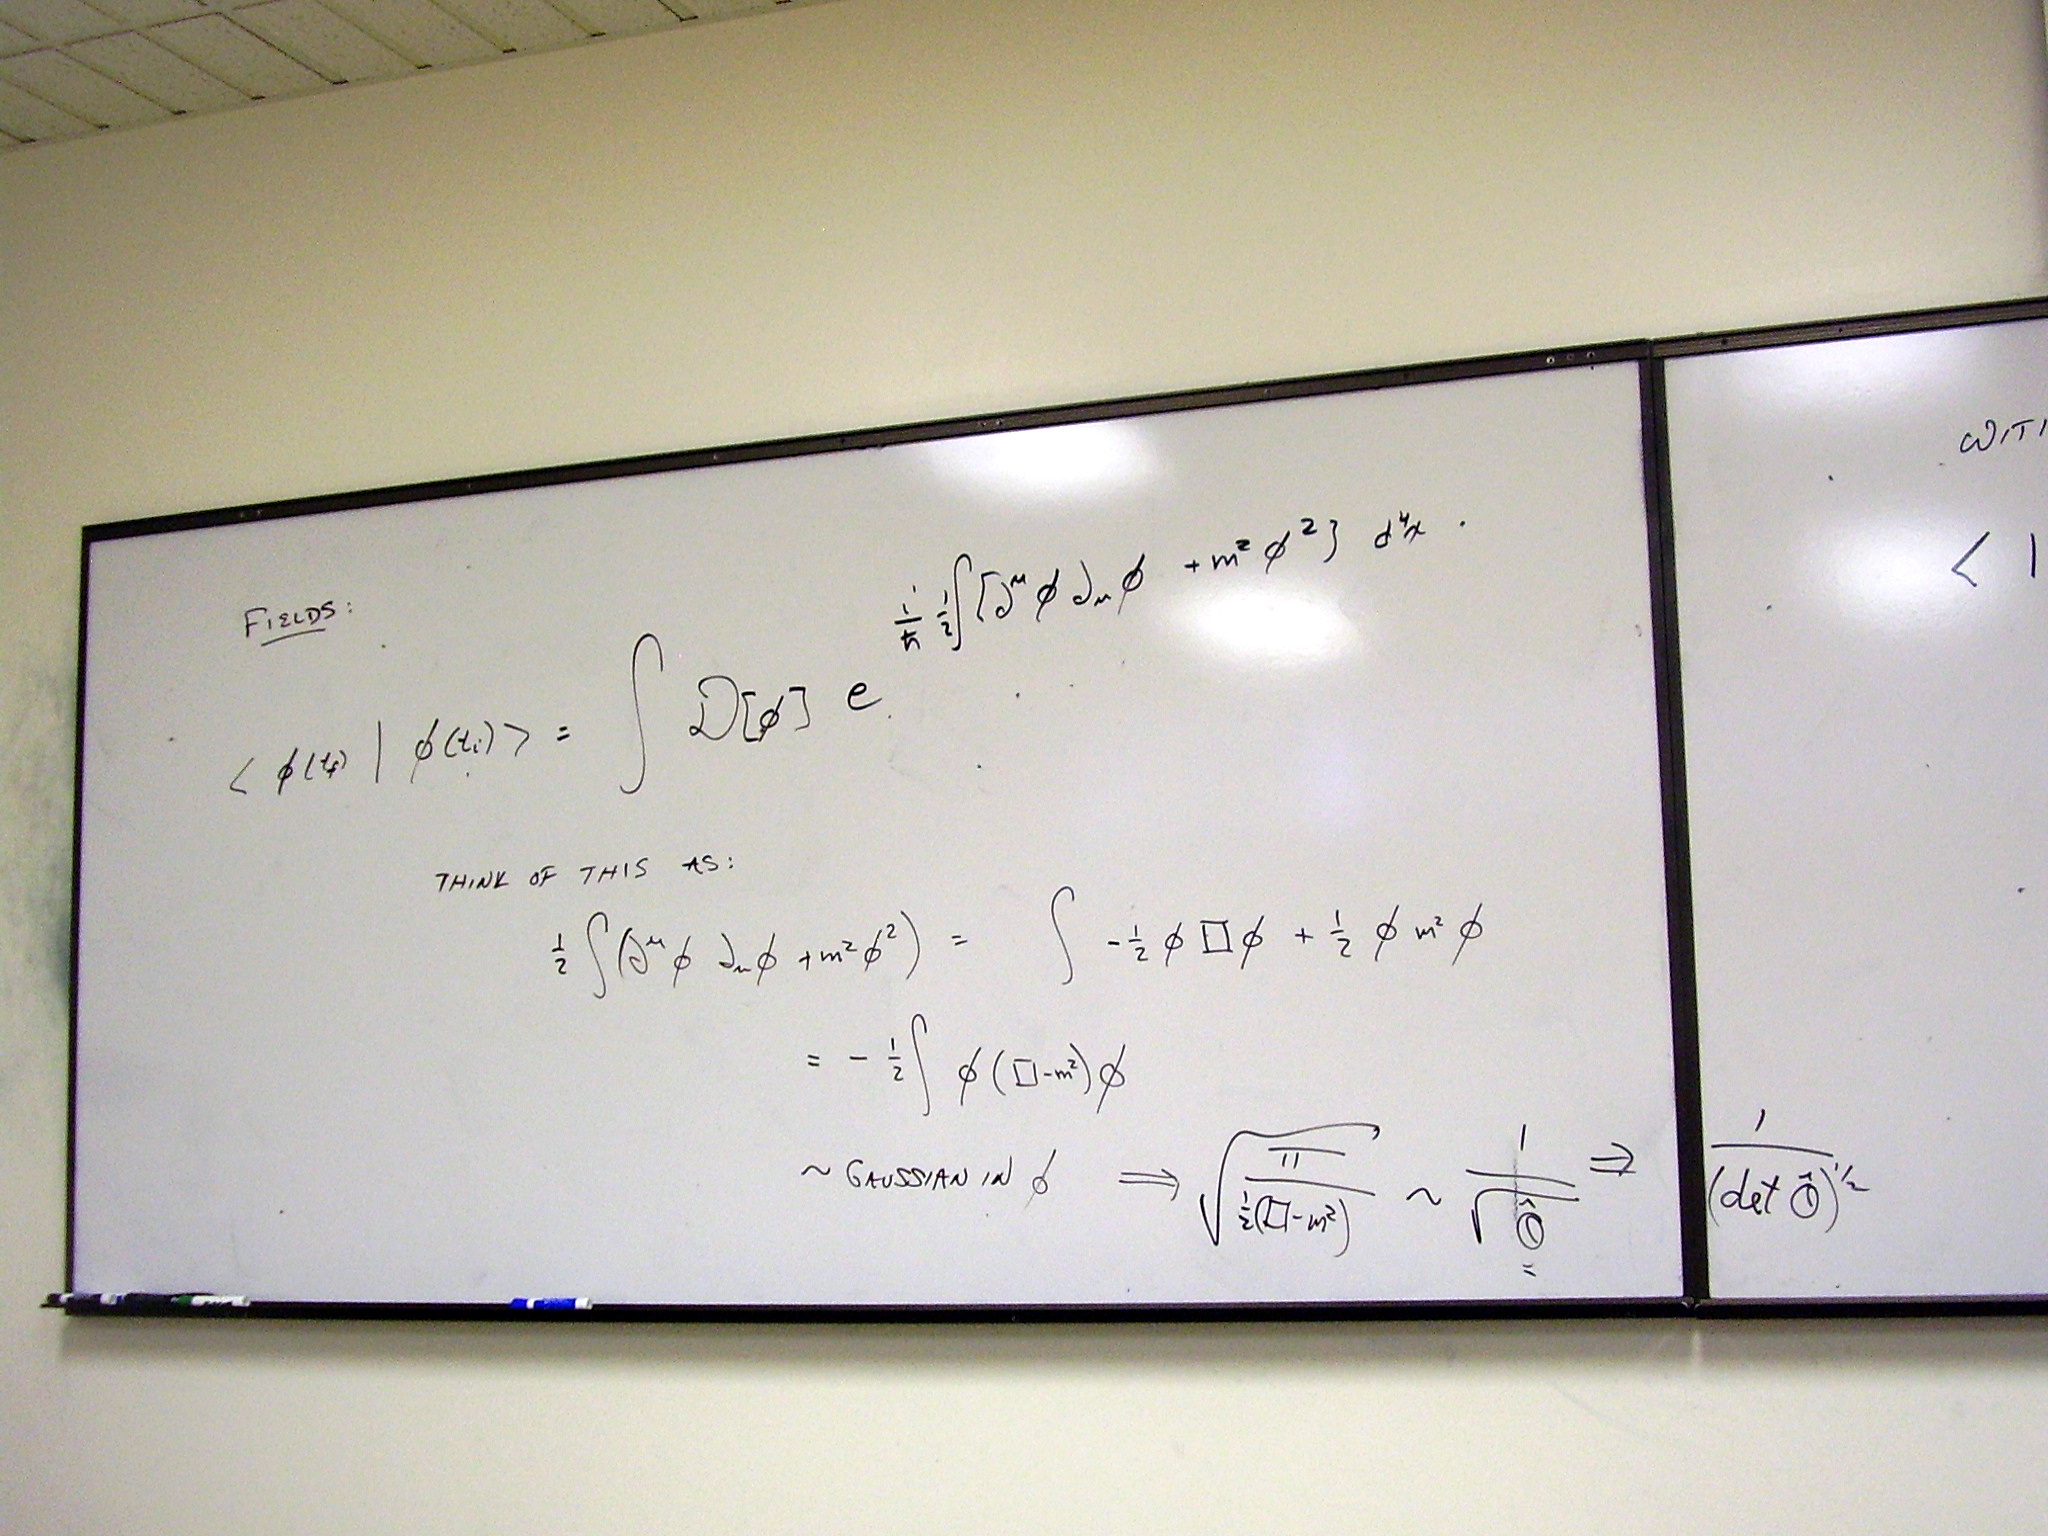 FIELDS:
< φ(t_f) | φ(t_i) > = ∫ D[φ] e^{i/ħ 1/2 ∫ [∂^μ φ ∂_μ φ + m² φ²} d⁴x .
THINK OF THIS AS:
1/2 ∫ (∂^μ φ ∂_μ φ + m² φ²) = ∫ -1/2 φ □ φ + 1/2 φ m² φ
= - 1/2 ∫ φ (□ - m²) φ
~ GAUSSIAN IN φ ⟹ √(π / 1/2(□ - m²)) ~ 1/√Ô ⇒ 1/(det Ô)^{1/2}
=
WIT
< |